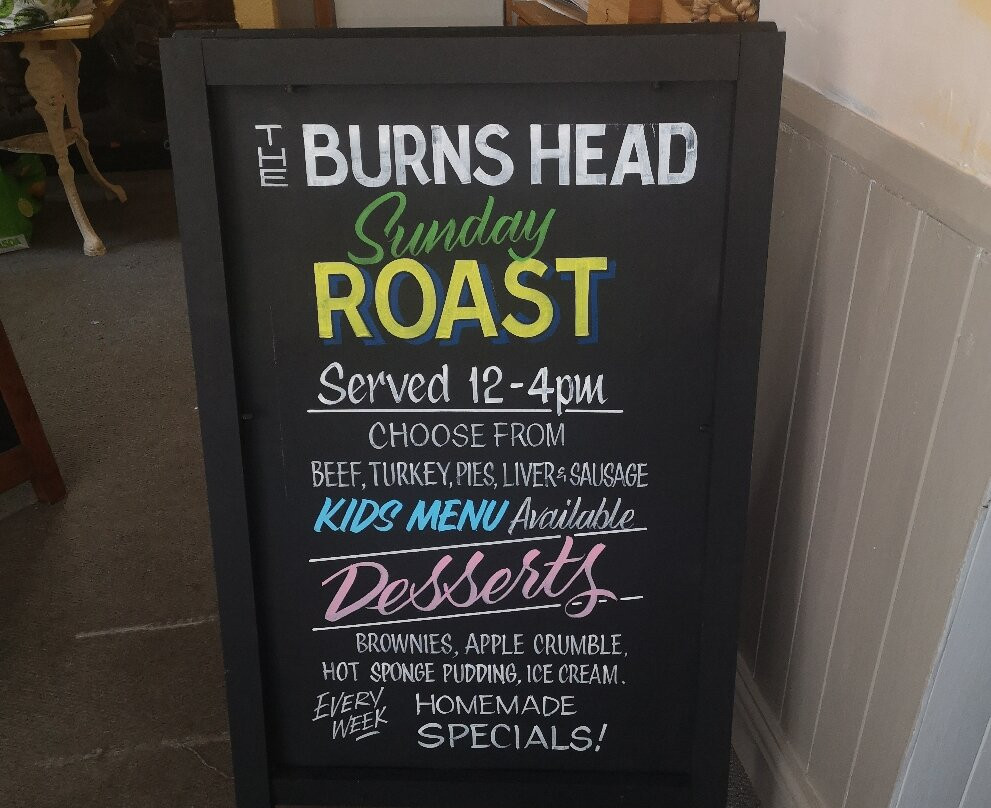 THE BURNS HEAD
Sunday
ROAST
Served 12-4pm
CHOOSE FROM
BEEF, TURKEY, PIES, LIVER & SAUSAGE
KIDS MENU Available
Desserts
BROWNIES, APPLE CRUMBLE,
HOT SPONGE PUDDING, ICE CREAM.
EVERY WEEK HOMEMADE
SPECIALS!
ASDA